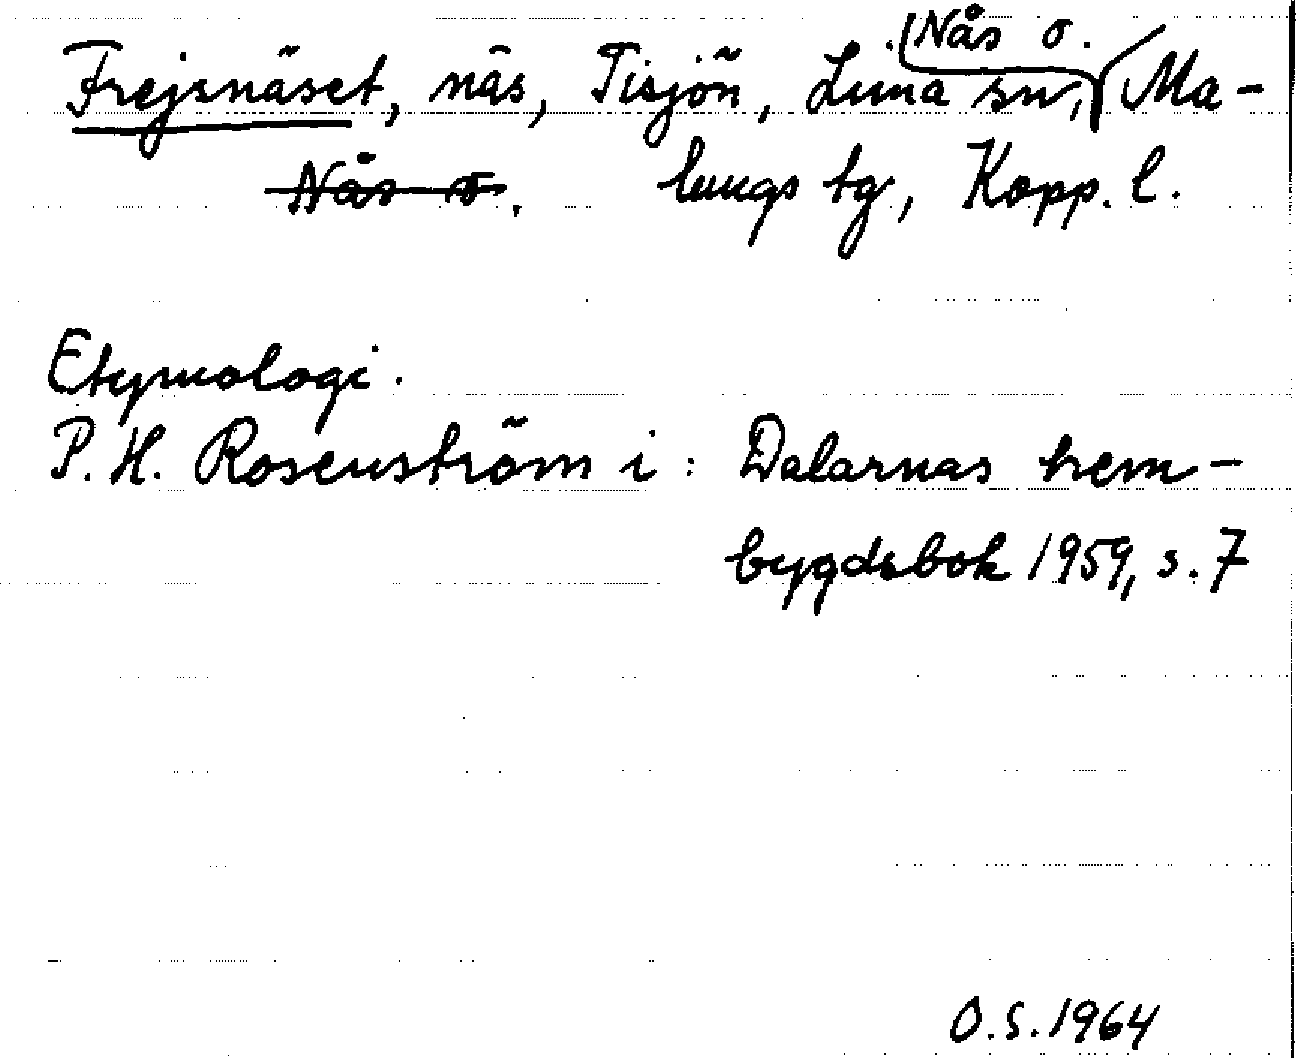 Nås o.
Frejsnäset, näs, Tisjön, Lima sn, Ma-
Nås o. lungs tg, Kopp. l.
Etymologi.
P. H. Rosenström i: Dalarnas hem-
bygdsbok 1959, s. 7
O.S. 1964